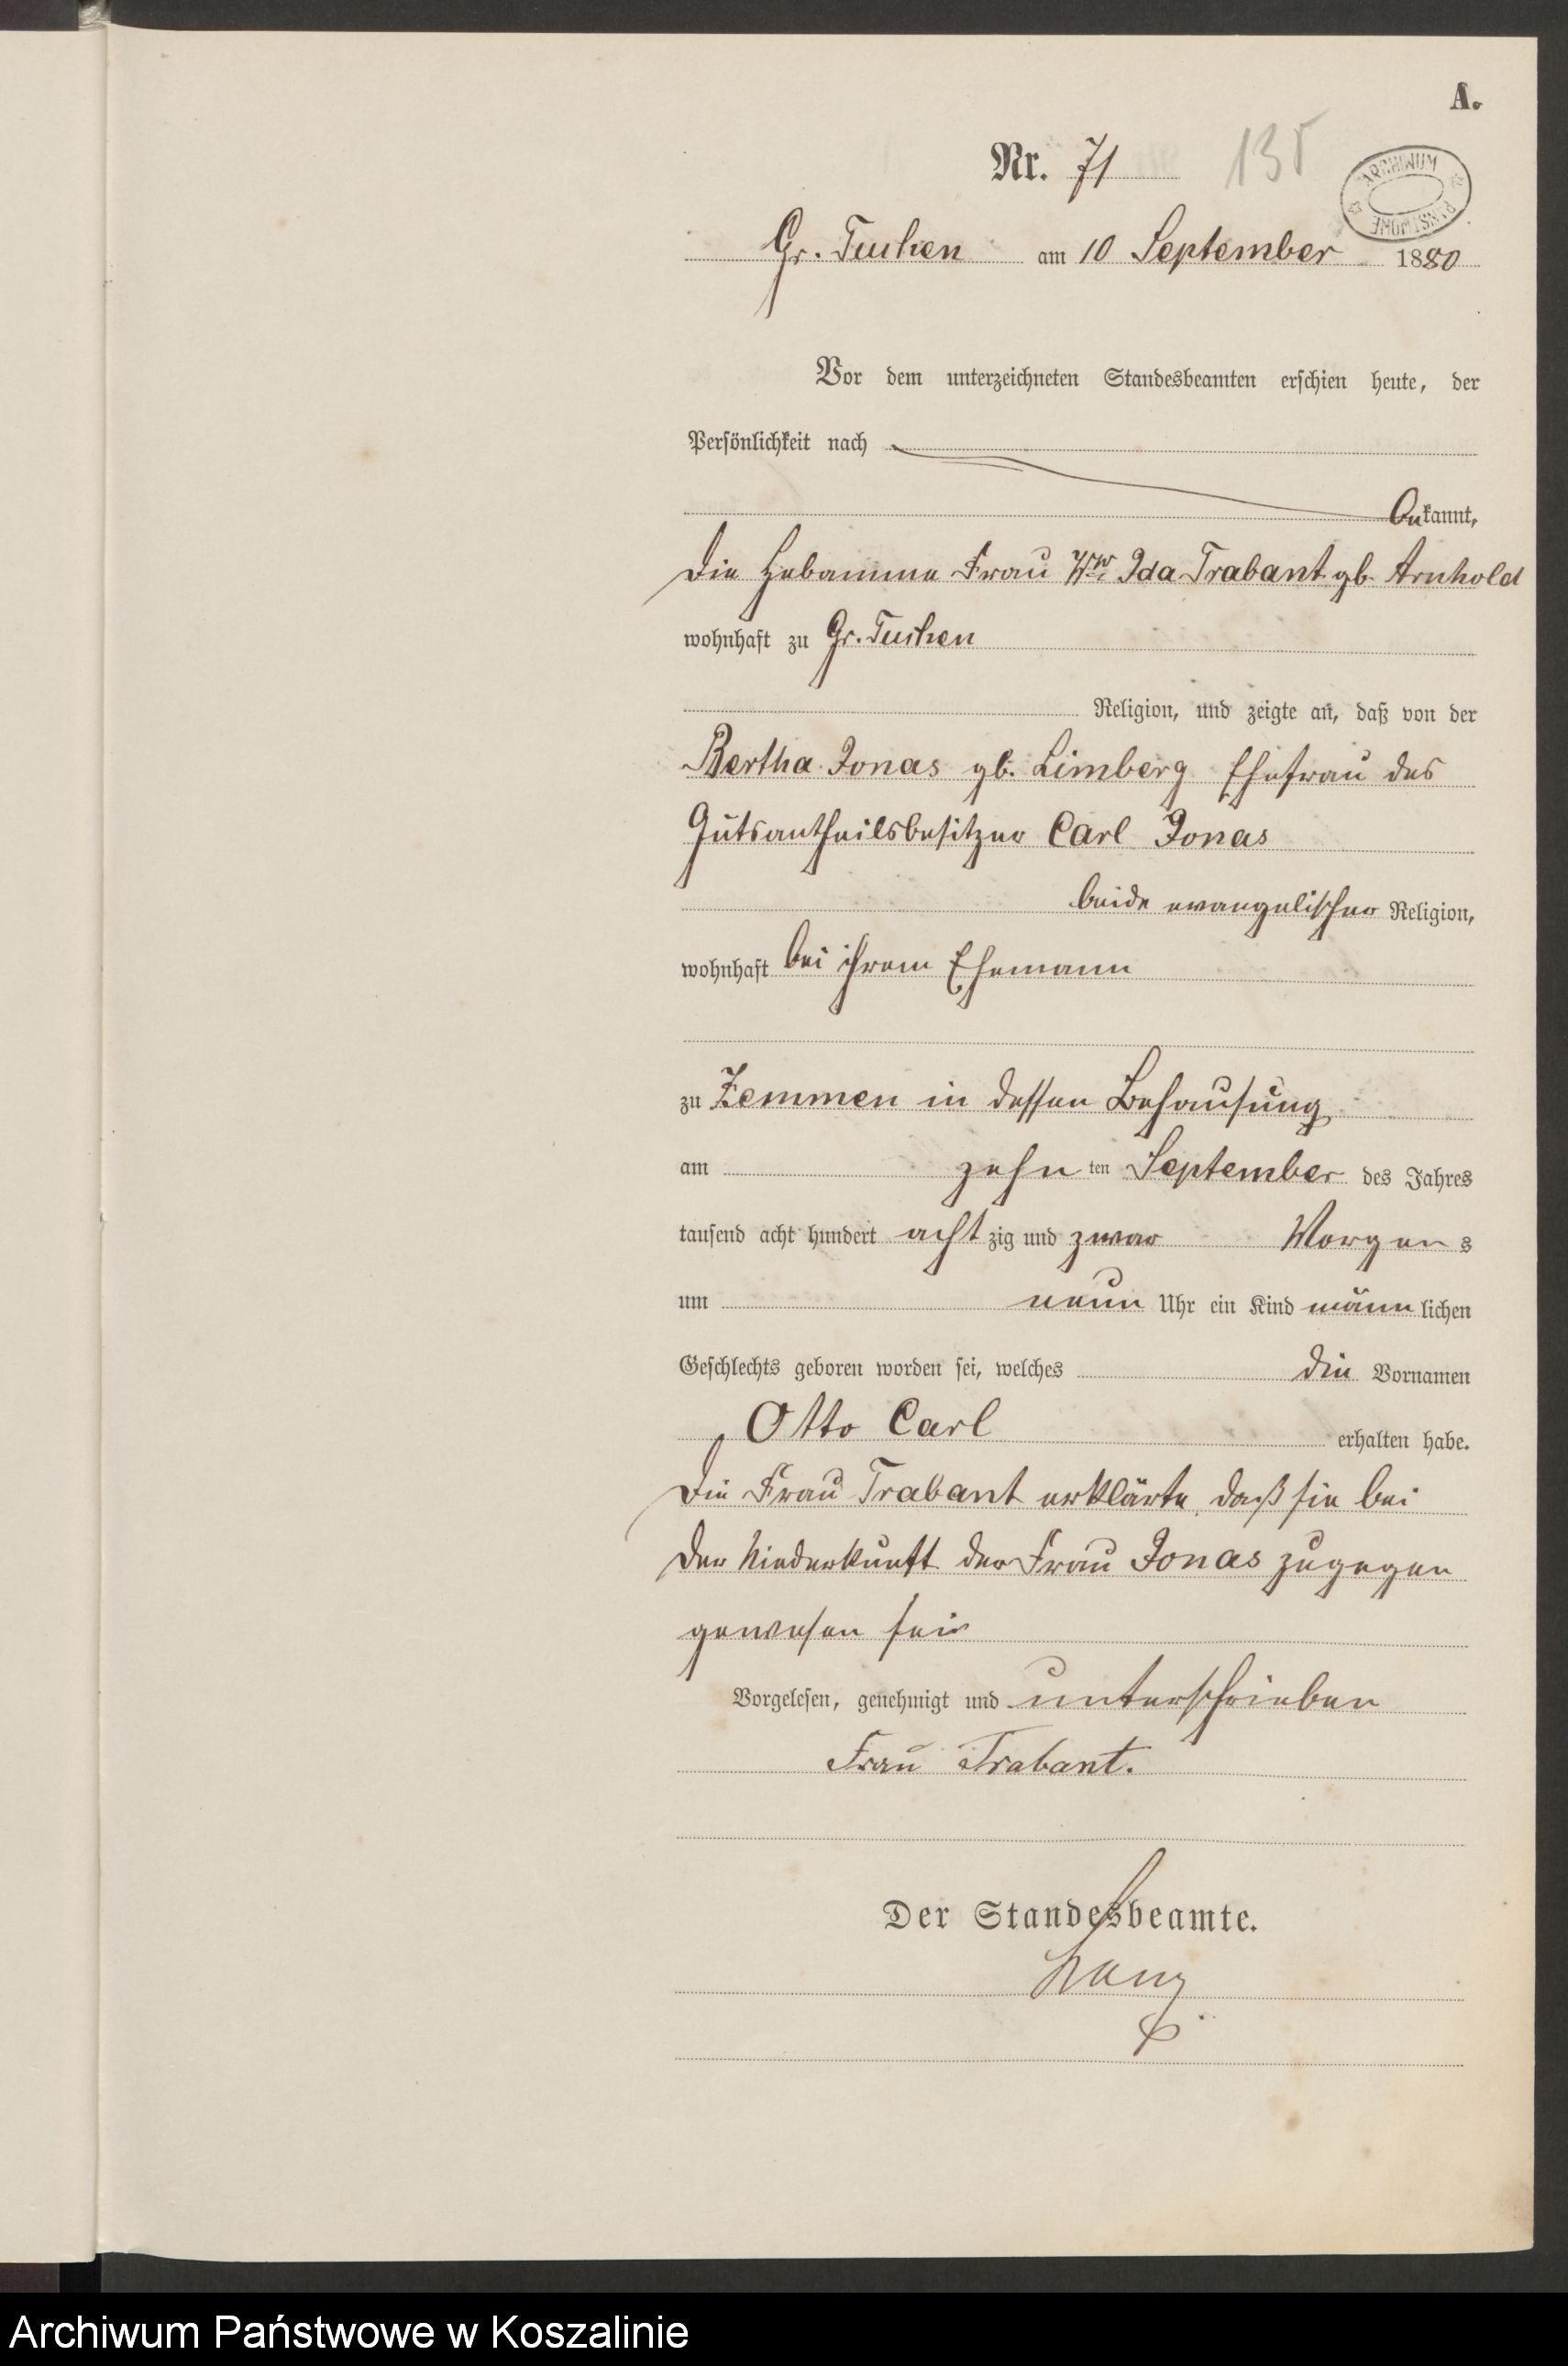 A.
Nr. 71 135
ARCHIWUM PAŃSTWOWE
Gr. Tuchen am 10 September 1880
Vor dem unterzeichneten Standesbeamten erschien heute, der
Persönlichkeit nach
bekannt,
die Hebamme Frau Wwe Ida Trabant gb. Arnhold
wohnhaft zu Gr. Tuchen
Religion, und zeigte an, daß von der
Bertha Jonas gb. Limberg Ehefrau des
Gutsantheilsbesitzer Carl Jonas
beide evangelischer Religion,
wohnhaft bei ihrem Ehemann
zu Zemmen in dessen Behausung
am zehn ten September des Jahres
tausend acht hundert acht zig und zwar Morgen s
um neun Uhr ein Kind männ lichen
Geschlechts geboren worden sei, welches die Vornamen
Otto Carl erhalten habe.
Die Frau Trabant erklärte, daß sie bei
der Niederkunft der Frau Jonas zugegen
gewesen sei
Vorgelesen, genehmigt und unterschrieben
Frau Trabant.
Der Standesbeamte.
Archiwum Państwowe w Koszalinie